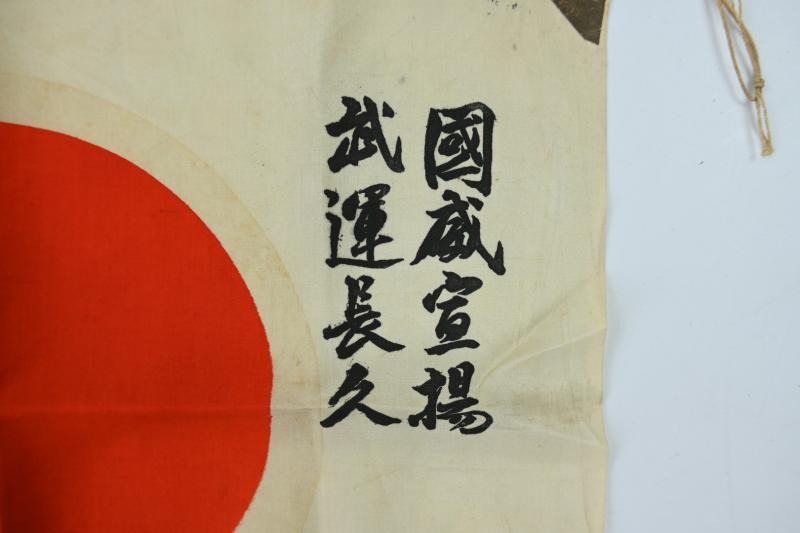 國威宣揚
武運長久